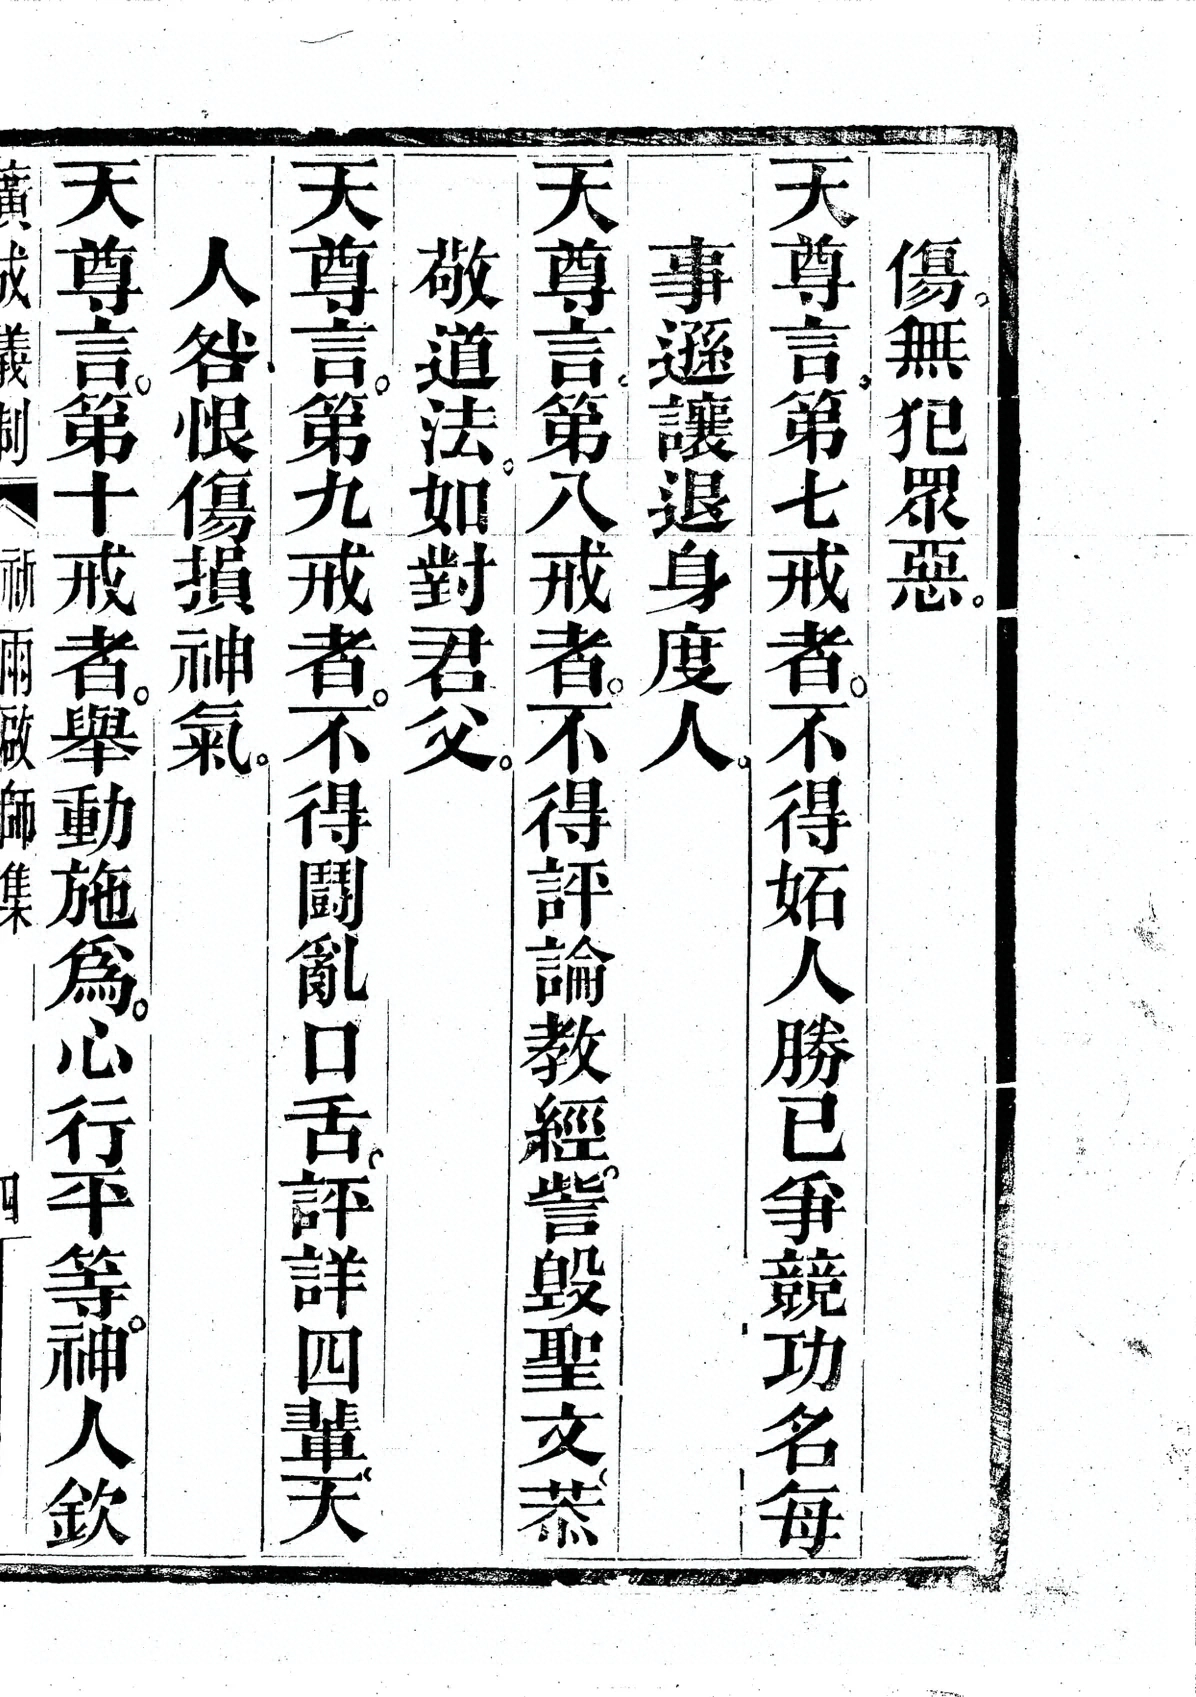 傷。無犯眾惡。
天尊言。第七戒者。不得妬人勝已爭競功名每
事遜讓退身度人。
天尊言。第八戒者。不得評論教經。訾毀聖文。恭
敬道法。如對君父。
天尊言。第九戒者。不得鬪亂口舌。評詳四輩。天
人咎恨傷損神氣。
天尊言。第十戒者。舉動施爲。心行平等。神人欽
廣成儀制 祈雨啟師集 四